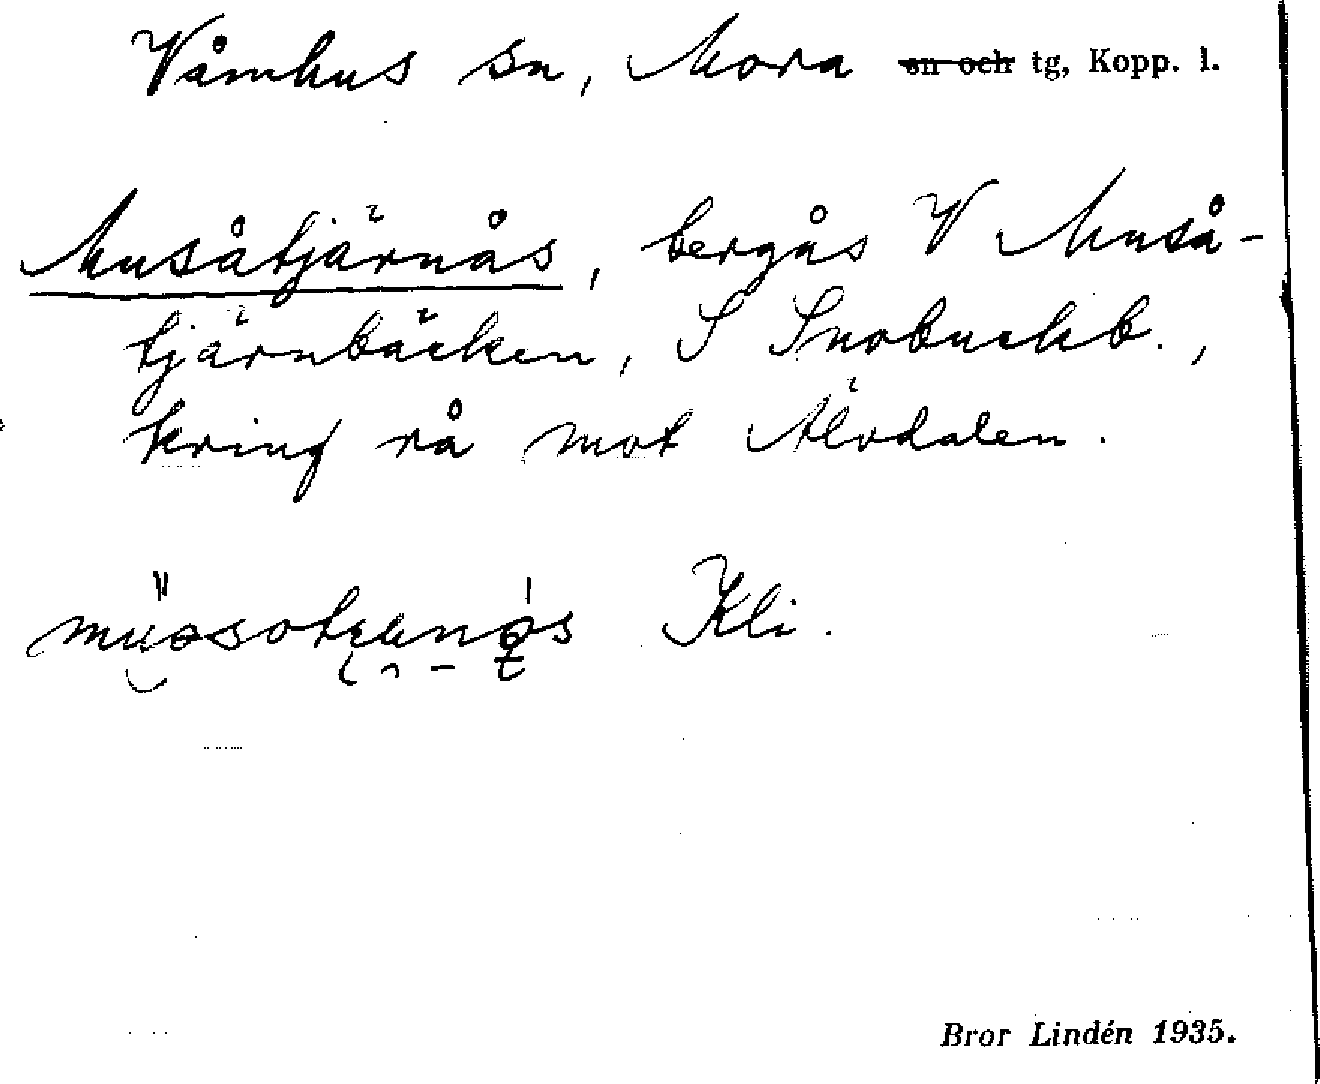 Våmhus sn, Mora sn och tg, Kopp. l.
Musåtjärnås, bergås V Muså-
tjärnbäcken, S Snobuckb.,
kring rå mot Älvdalen.
Kli.
Bror Lindén 1935.